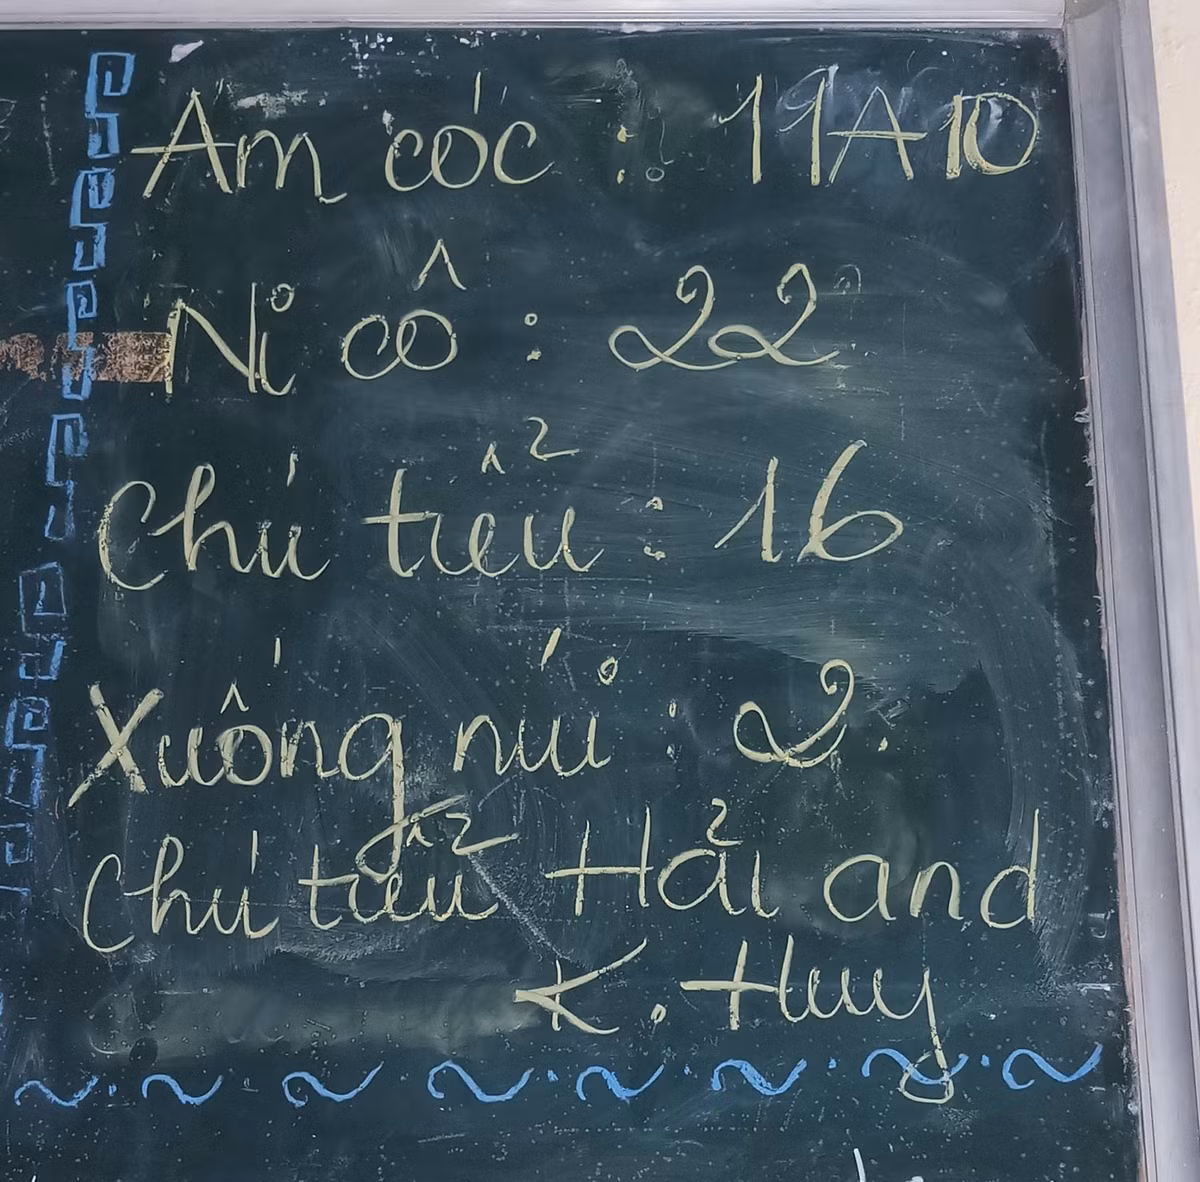 Am cốc : 19A10
Ni cô : 22
Chú tiểu : 16
Xuống núi : 2.
Chú tiểu Hải and
K. Huy